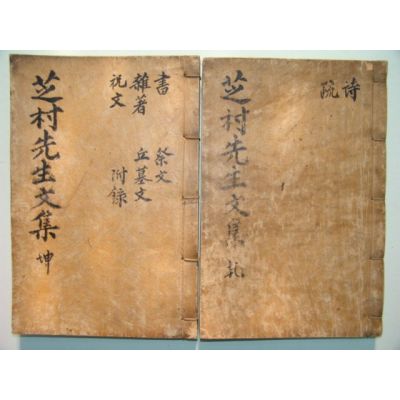 詩
疏
芝村先生文集 乹
書
雜著
祝文
祭文
丘墓文
附錄
芝村先生文集 坤